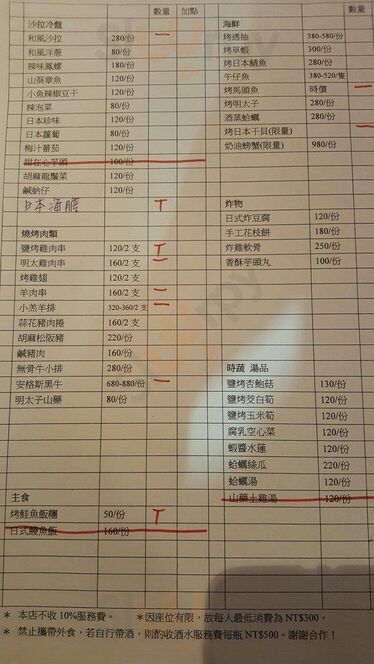 數量 加點
沙拉冷盤
和風沙拉 280/份
和風洋蔥 80/份
辣味鳳螺 180/份
山葵章魚 120/份
小魚辣椒豆干 120/份
辣泡菜 80/份
日本珍味 120/份
日本蘿蔔 80/份
梅汁蕃茄 120/份
甜在心芋頭 100/份
胡麻龍鬚菜 120/份
鹹蚋仔 120/份
日本海膽 T
燒烤肉類
鹽烤雞肉串 120/2 支 T
明太雞肉串 160/2 支
烤雞翅 120/2 支
羊肉串 160/2 支
小羔羊排 320-360/2 支
蒜花豬肉捲 160/2 支
胡麻松阪豬 220/份
鹹豬肉 160/份
無骨牛小排 280/份
安格斯黑牛 680-880/份
明太子山藥 80/份
主食
烤鮭魚飯糰 50/份 T
日式鰻魚飯 160/份
數量
海鮮
烤透抽 380-580/份
烤草蝦 300/份
烤日本鯖魚 280/份
午仔魚 380-520/隻
烤馬頭魚 時價
烤明太子 280/份
酒蒸蛤蠣 280/份
烤日本干貝(限量)
奶油螃蟹(限量) 980/份
炸物
日式炸豆腐 120/份
手工花枝餅 180/份
炸雞軟骨 250/份
香酥芋頭丸 100/份
時蔬 湯品
鹽烤杏鮑菇 130/份
鹽烤茭白筍 120/份
鹽烤玉米筍 120/份
腐乳空心菜 120/份
蝦醬水蓮 120/份
蛤蠣絲瓜 220/份
蛤蠣湯 120/份
山藥土雞湯 120/份
* 本店不收 10%服務費。 *因座位有限，故每人最低消費為 NT$300。
* 禁止攜帶外食，若自行帶酒，則酌收酒水服務費每瓶 NT$500。謝謝合作！